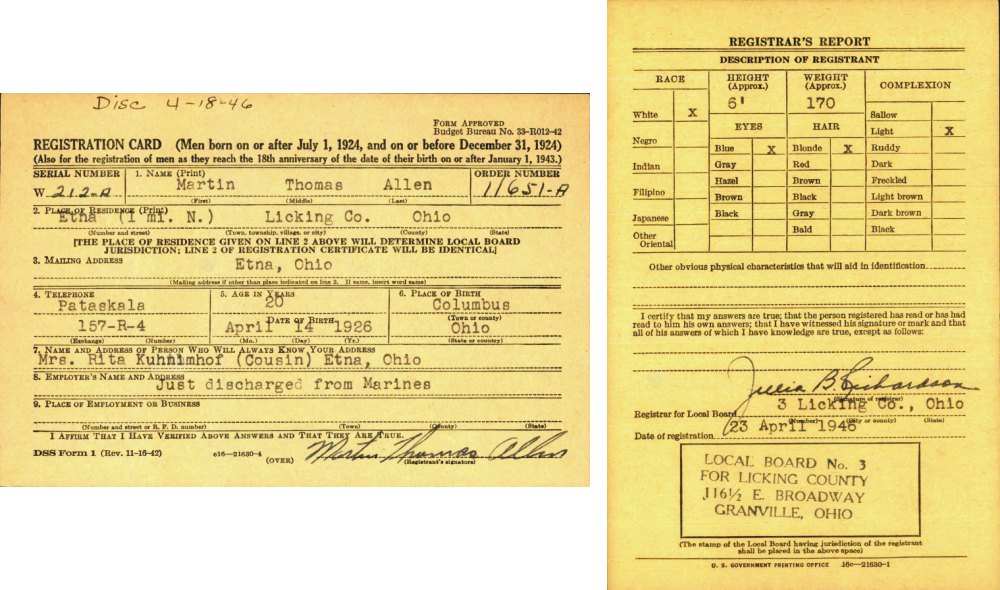 Disc 4-18-46
FORM APPROVED
Budget Bureau No. 33-R012-42
REGISTRATION CARD (Men born on or after July 1, 1924, and on or before December 31, 1924)
(Also for the registration of men as they reach the 18th anniversary of the date of their birth on or after January 1, 1943.)
SERIAL NUMBER 1. NAME (Print) ORDER NUMBER
W 212-A Martin Thomas Allen 11651-A
(First) (Middle) (Last)
2. PLACE OF RESIDENCE (Print)
Etna (1 mi. N.) Licking Co. Ohio
(Number and street) (Town, township, village, or city) (County) (State)
[THE PLACE OF RESIDENCE GIVEN ON LINE 2 ABOVE WILL DETERMINE LOCAL BOARD
JURISDICTION; LINE 2 OF REGISTRATION CERTIFICATE WILL BE IDENTICAL]
3. MAILING ADDRESS
Etna, Ohio
(Mailing address if other than place indicated on line 2. If same, insert word same)
4. TELEPHONE 5. AGE IN YEARS 6. PLACE OF BIRTH
Pataskala 20 Columbus
DATE OF BIRTH (Town or county)
157-R-4 April 14 1926 Ohio
(Exchange) (Number) (Mo.) (Day) (Yr.) (State or country)
7. NAME AND ADDRESS OF PERSON WHO WILL ALWAYS KNOW YOUR ADDRESS
Mrs. Rita Kuhnimhof (Cousin) Etna, Ohio
8. EMPLOYER'S NAME AND ADDRESS
Just discharged from Marines
9. PLACE OF EMPLOYMENT OR BUSINESS
(Number and street or R. F. D. number) (Town) (County) (State)
I AFFIRM THAT I HAVE VERIFIED ABOVE ANSWERS AND THAT THEY ARE TRUE.
DSS Form 1 (Rev. 11-16-42) c16—21630-4 (OVER) Martin Thomas Allen
(Registrant's signature)
REGISTRAR'S REPORT
DESCRIPTION OF REGISTRANT
RACE HEIGHT (Approx.) WEIGHT (Approx.) COMPLEXION
6' 170
White X Sallow
Light X
EYES HAIR
Negro Blue X Blonde X Ruddy
Gray Red Dark
Indian Hazel Brown Freckled
Filipino Brown Black Light brown
Japanese Black Gray Dark brown
Other Oriental Bald Black
Other obvious physical characteristics that will aid in identification
I certify that my answers are true; that the person registered has read or has had
read to him his own answers; that I have witnessed his signature or mark and that
all of his answers of which I have knowledge are true, except as follows:
Julia B. Richardson
(Signature of registrar)
Registrar for Local Board 3 Licking Co., Ohio
(Number) (City or county) (State)
Date of registration 23 April 1946
LOCAL BOARD No. 3
FOR LICKING COUNTY
116½ E. BROADWAY
GRANVILLE, OHIO
(The stamp of the Local Board having jurisdiction of the registrant
shall be placed in the above space)
U. S. GOVERNMENT PRINTING OFFICE 16c—21630-1